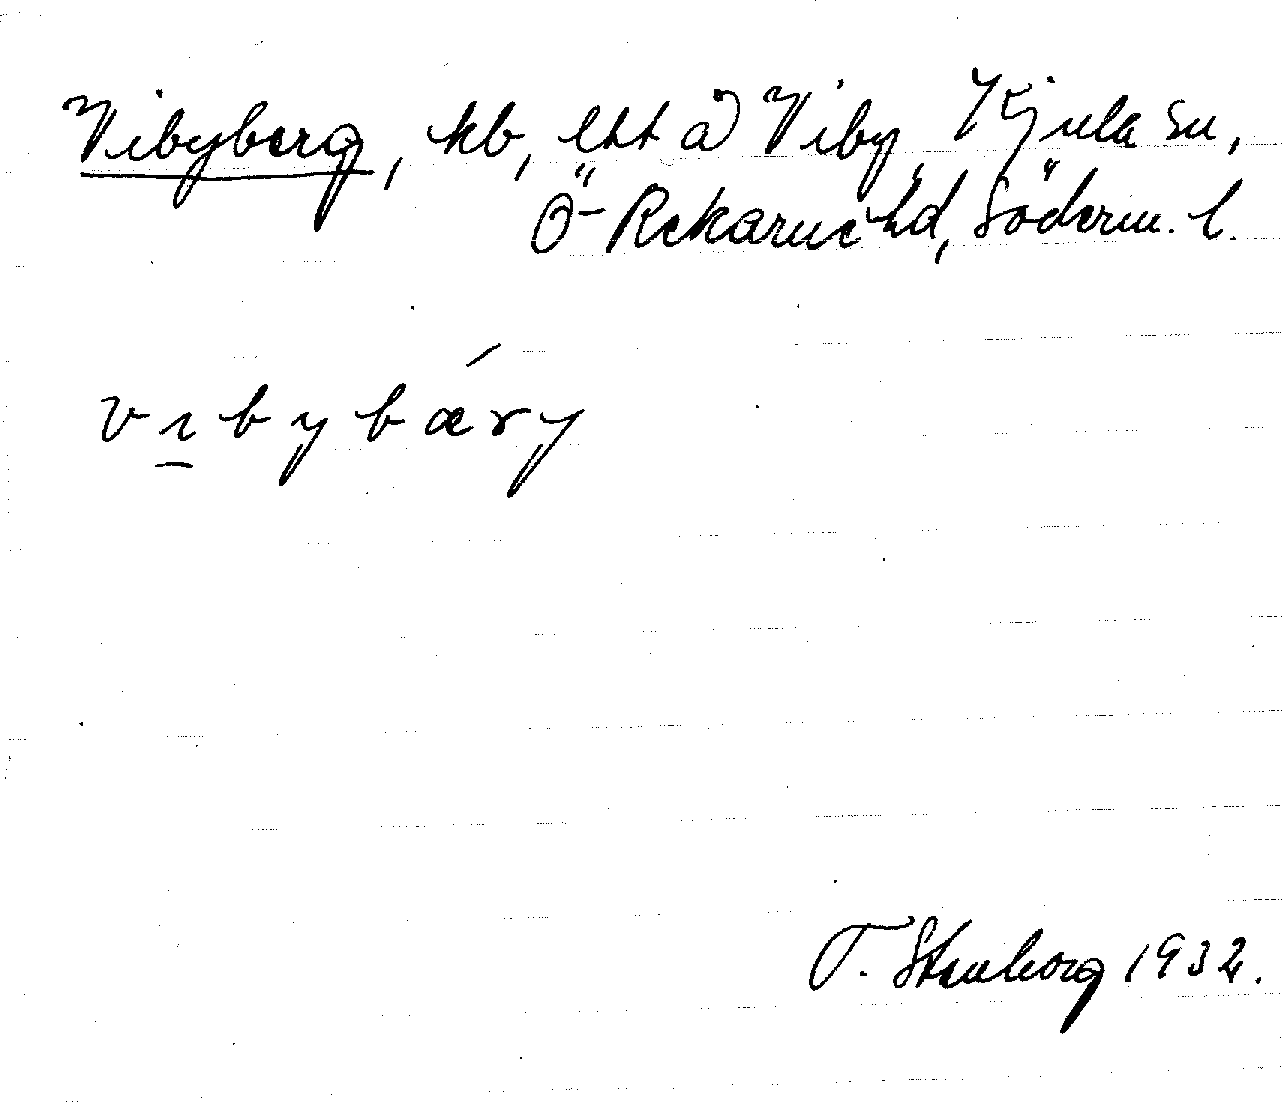 Vibyberg, kb, lht å Viby, Kjula sn,
Ö-Rekarne hd, Söderm. l.
vıbybáry
T. Stenborg 1932.